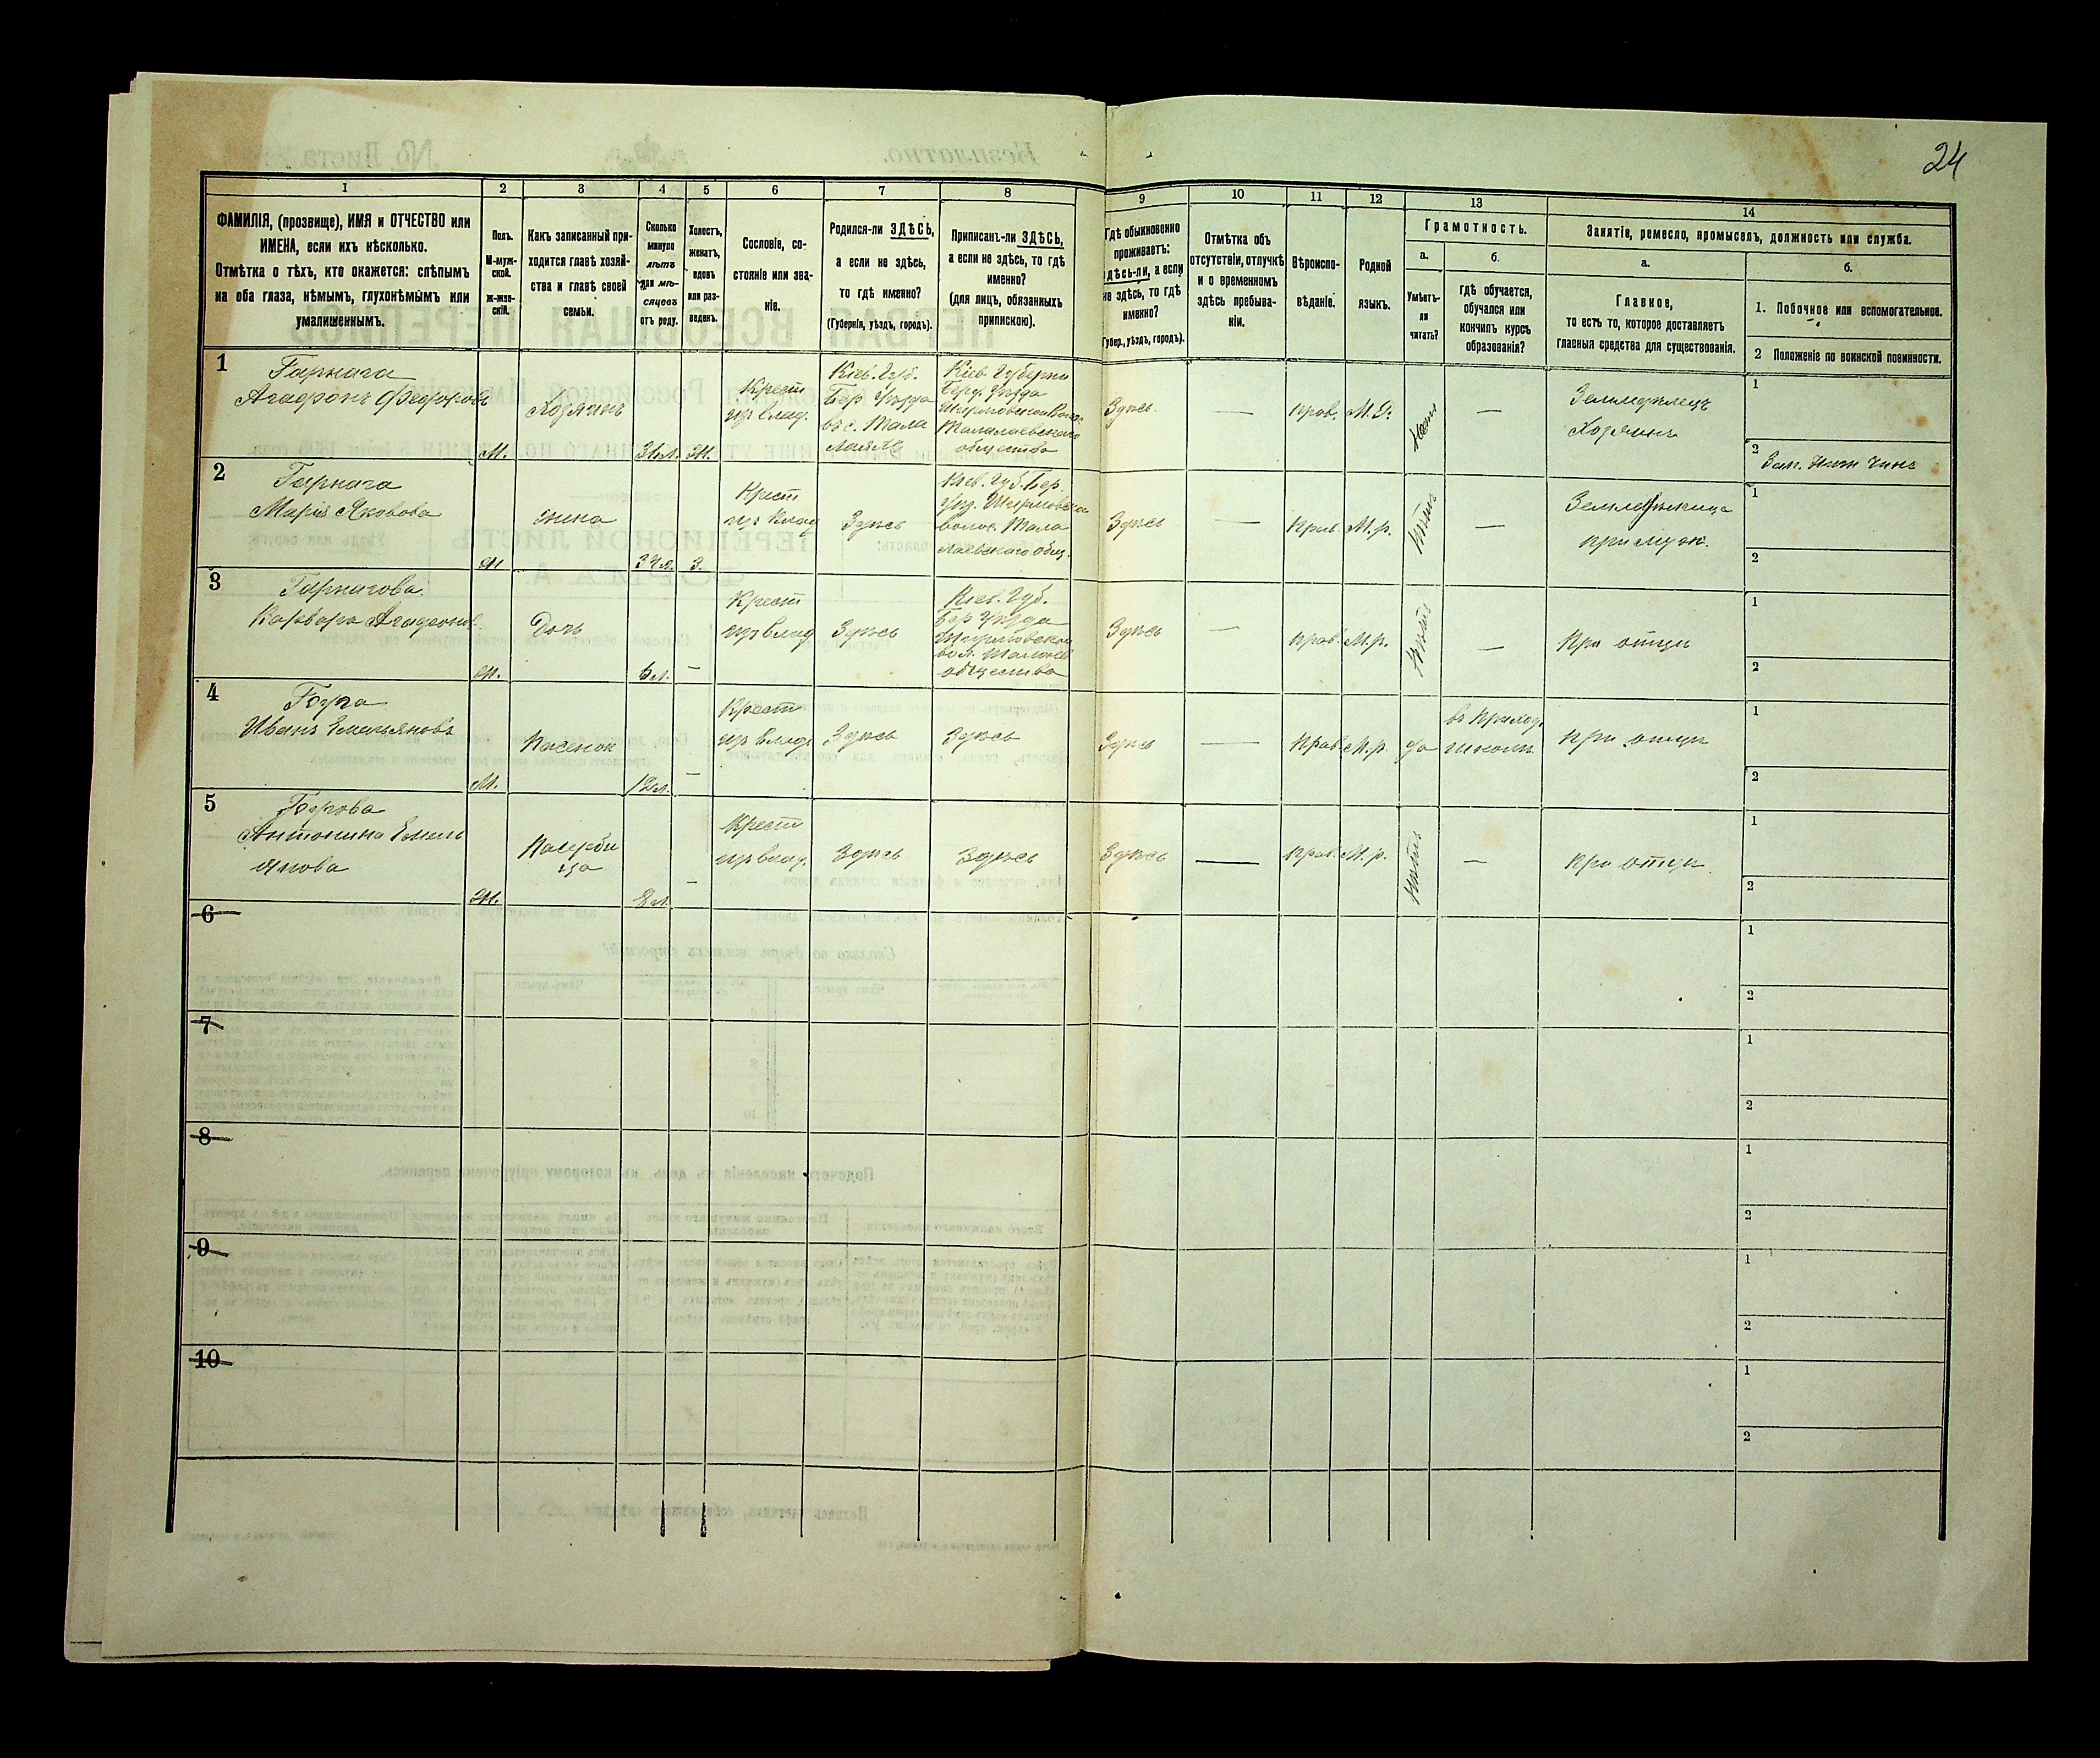 24
1
2
3
4
5
6
7
8
9
10
11
12
13
14
ФАМИЛІЯ, (прозвище), ИМЯ и ОТЧЕСТВО или
ИМЕНА, если ихъ нѣсколько.
Отмѣтка о тѣхъ, кто окажется: слѣпымъ
на оба глаза, нѣмымъ, глухонѣмымъ или
умалишеннымъ.
Полъ.
М-муж-
ской.
Ж-жен-
скій.
Какъ записанный при-
ходится главѣ хозяй-
ства и главѣ своей
семьи.
Сколько
минуло
лѣтъ
или мѣ-
сяцевъ
отъ роду.
Холостъ,
женатъ,
вдовъ
или раз-
веденъ.
Сословіе, со-
стояніе или зва-
ніе.
Родился-ли ЗДѢСЬ,
а если не здѣсь,
то гдѣ именно?
(Губернія, уѣздъ, городъ).
Приписанъ-ли ЗДѢСЬ,
а если не здѣсь, то гдѣ
именно?
(для лицъ, обязанныхъ
припискою).
Гдѣ обыкновенно
проживаетъ:
здѣсь-ли, а если
не здѣсь, то гдѣ
именно?
(Губер., уѣздъ, городъ).
Отмѣтка объ
отсутствіи, отлучкѣ
и о временномъ
здѣсь пребыва-
ніи.
Вѣроиспо-
вѣданіе.
Родной
языкъ.
Грамотность.
а.
Умѣетъ-
ли
читать?
б.
гдѣ обучается,
обучался или
кончилъ курсъ
образованія?
Занятіе, ремесло, промыселъ, должность или служба.
а.
Главное,
то есть то, которое доставляетъ
главныя средства для существованія.
б.
1. Побочное или вспомогательное.
2 Положеніе по воинской повинности.
1
Гарнага
Агафонъ Федоровъ
М.
Хозяинъ
Ж.
Крест
изъ влад.
Кіев. Губ.
Бер Уѣзда
въ с. Тала
лаяхъ
Кіев. Губерни
Берд. Уѣзда
Талалаевскаго
общества
Здѣсь.
—
прав.
М. Р.
Нѣтъ
—
Земледѣлецъ
Хозяинъ
1
2
Зап. Ниж Чинъ
2
Гарнага
Марія Яковова
Ж
жена
З.
Крест
изъ влад
Здѣсь
Кіев. Губ. Бер.
Уѣз.
волос. Тала
лаевскаго общ.
Здѣсь
—
прав
М. р.
Нѣтъ
—
Земледѣлица
при муж.
1
2
3
Гарнагова
Варвара Агафонов.
Ж.
Дочь
6 л.
—
Крест
изъ влад
Здѣсь
Кіев. Губ.
Бер Уѣзда
общества
Здѣсь
—
прав.
М. р.
Нѣтъ
—
При отцѣ
1
2
4
Иванъ Емельяновъ
М.
Пасенок
12 л.
—
Крест
изъ влад.
Здѣсь
Здѣсь
Здѣсь
—
Прав.
М. р.
да
въ приход.
школѣ
при отцѣ
1
2
5
Антонина Емель
янова
Ж.
Пасерби
ца
8 л.
—
Крест
изъ влад.
Здѣсь
Здѣсь
Здѣсь
—
прав.
М. р.
Нѣтъ
—
при отцѣ.
1
2
6
1
2
7
1
2
8
1
2
9
1
2
10
1
2